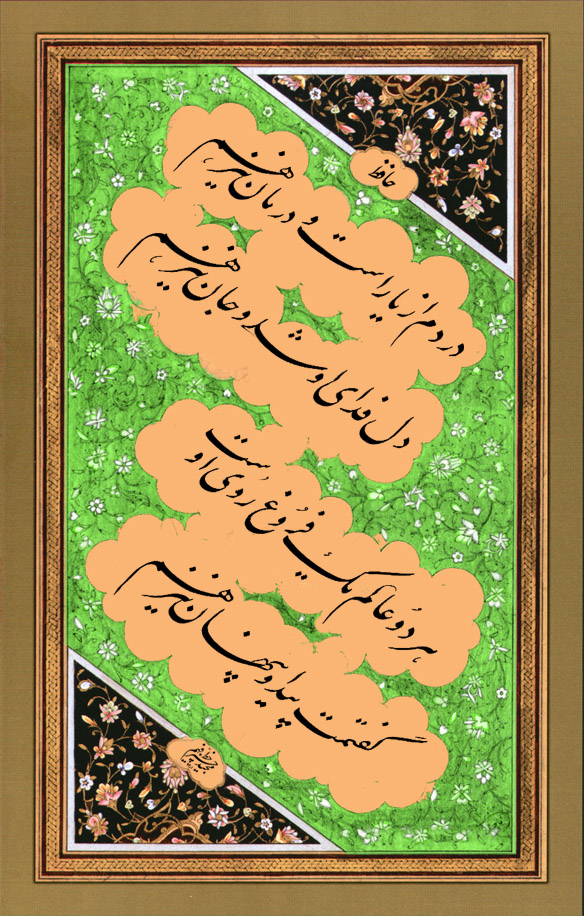 حافظ
دردم از یار است و درمان نیز هم
دل فدای او شد و جان نیز هم
هر دو عالم یک فروغ روی اوست
گفتمت پیدا و پنهان نیز هم